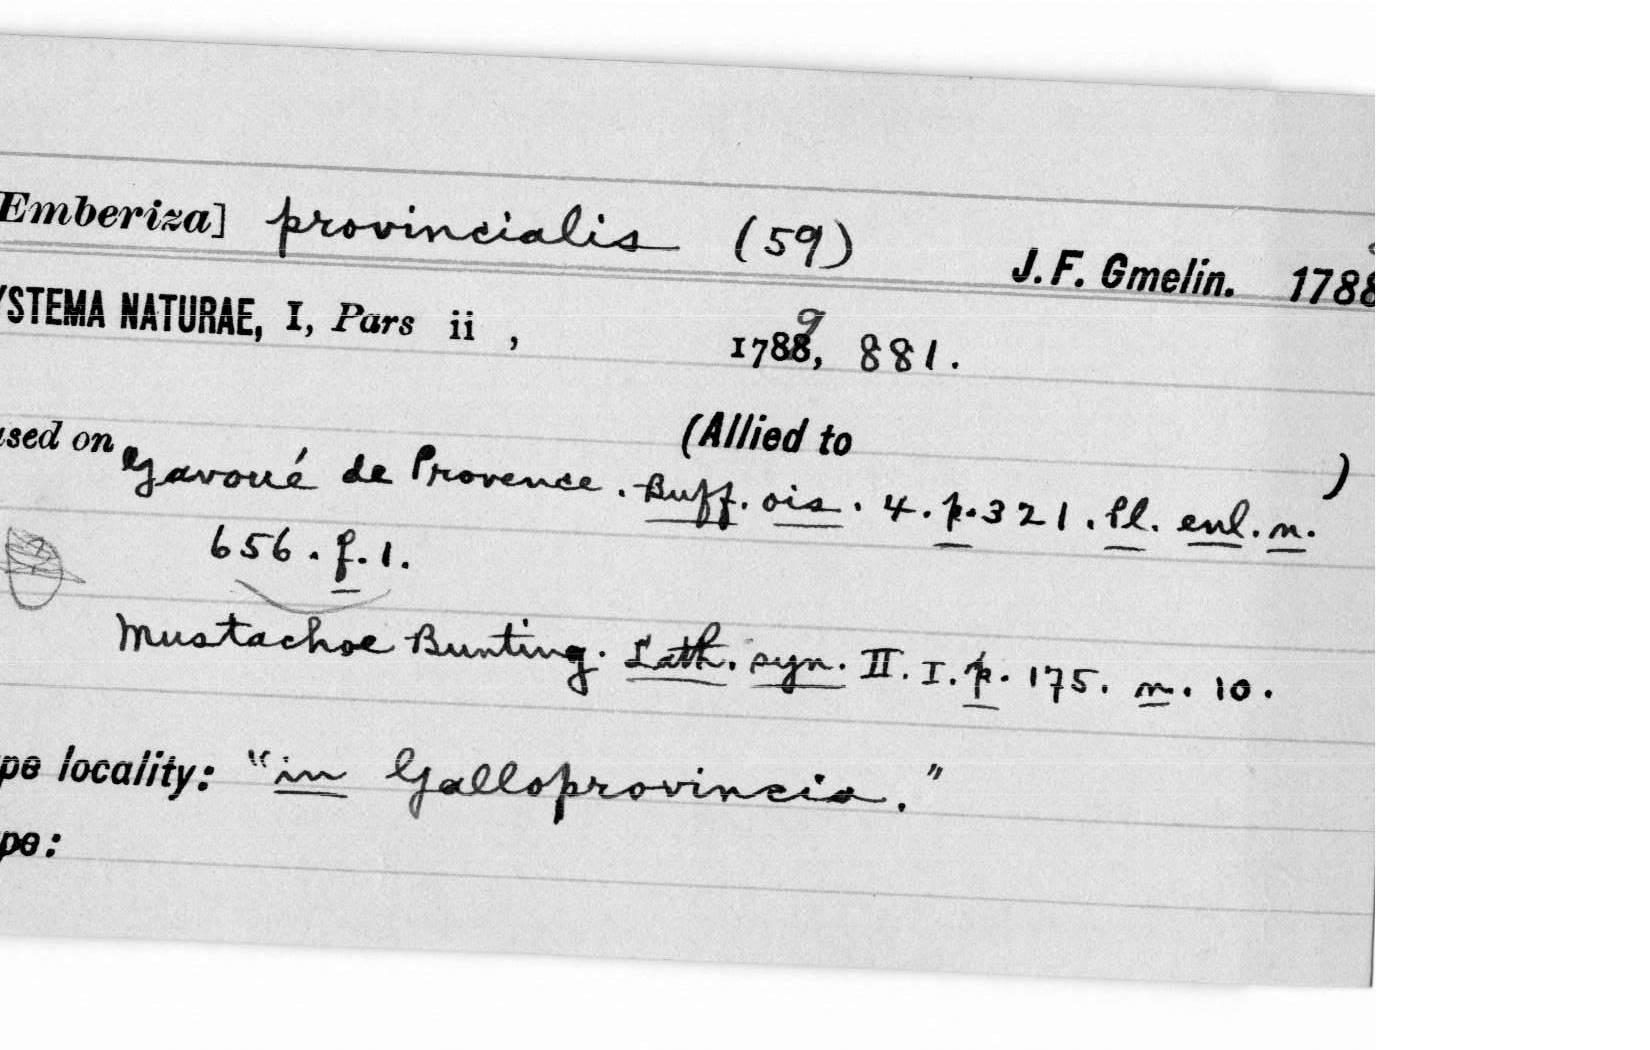 Emberiza] provincialis (59)
J. F. Gmelin. 1788
YSTEMA NATURAE, I, Pars ii , 1788, 9 881.
(Allied to )
ased on Gavoué de Provence. Buff. ois. 4. p. 321. Pl. enl. n.
656. f. 1.
Mustachoe Bunting. Lath. syn. II. I. p. 175. n. 10.
pe locality: "in Galloprovincia."
pe: